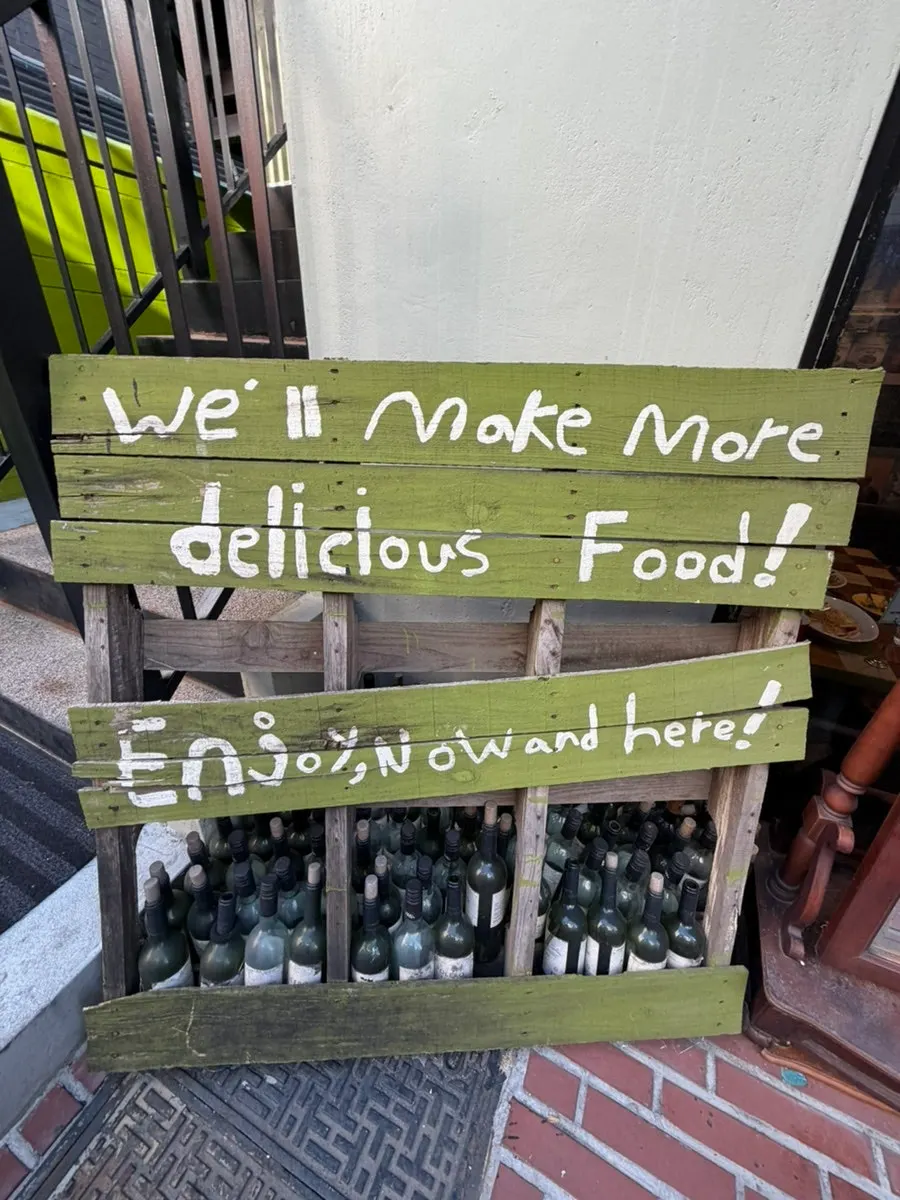 We'll Make More
delicious Food!
Enjoy, Now and here!